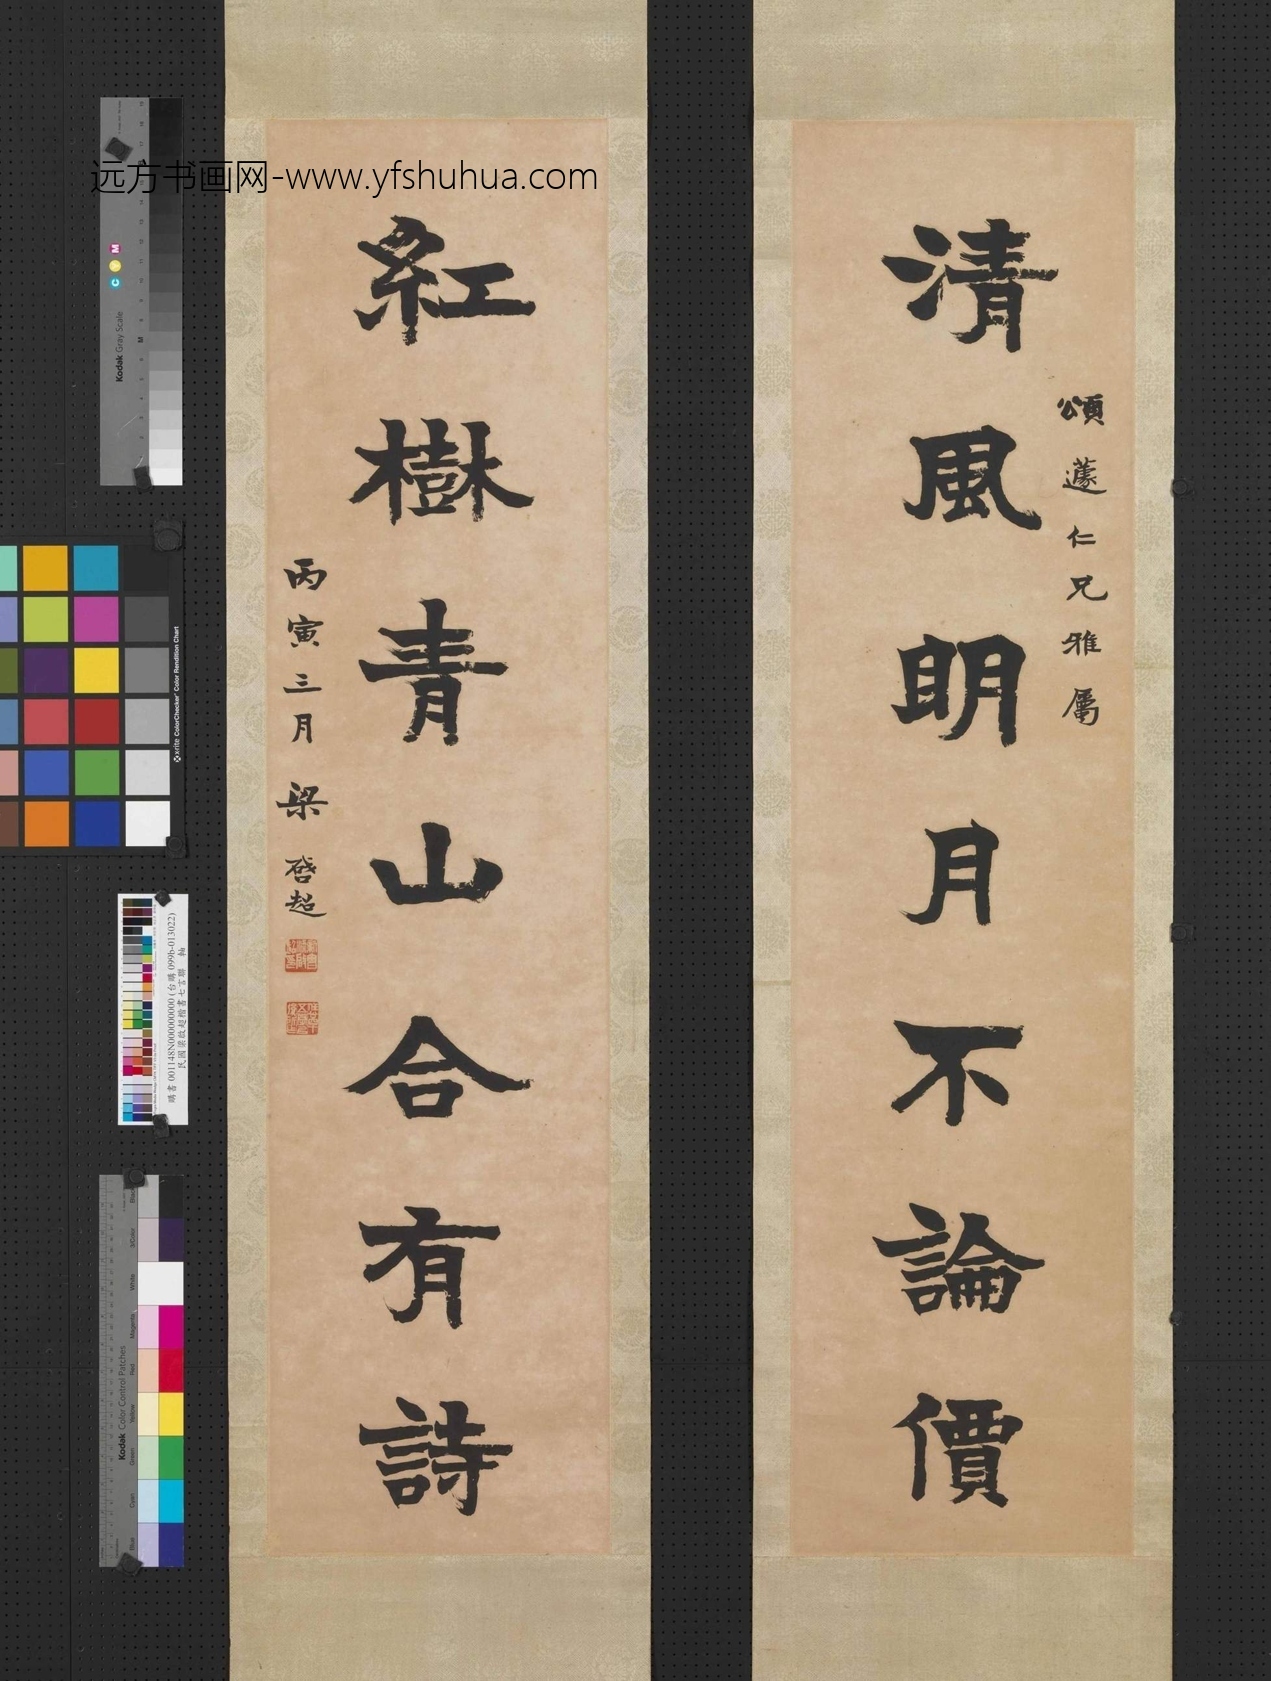 远方书画网-www.yfshuhua.com
清風明月不論價
頌蘧仁兄雅屬
紅樹青山合有詩
丙寅三月 梁啓超
Kodak Gray Scale
C Y M
xrite ColorChecker Color Rendition Chart
購書 001148N000000000 (台購 099b-013022)
民國梁啟超楷書七言聯 軸
Kodak Color Control Patches
Blue Cyan Green Yellow Red Magenta White 3/Color Black